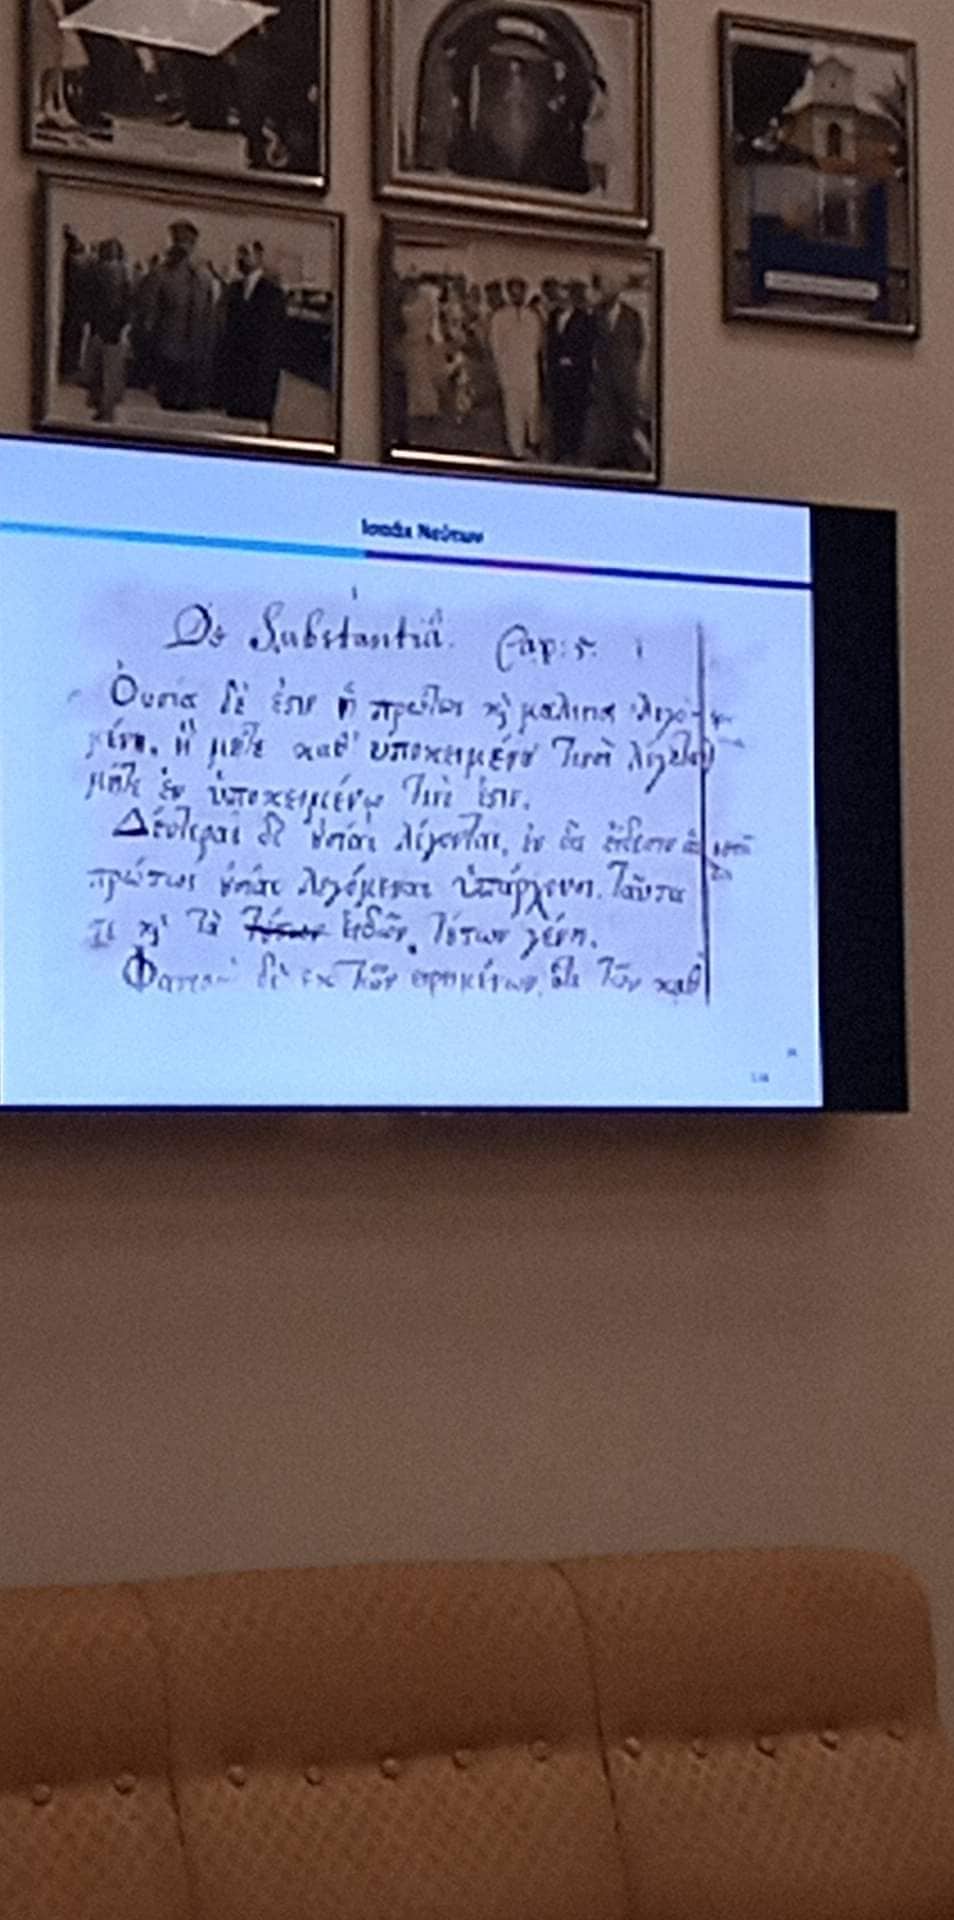 Ισαάκ Νεύτων
De Substantiâ. Cap: 5.
Ὀυσία δέ ἐστιν ἡ πρώτως κỳ μάλιστα λεγο-
μένη, ἣ μήτε καθ' ὑποκειμένȣ τινὸς λέγεται
μήτε ἐν ὑποκειμένῳ τινί ἐστιν.
Δέυτεραι δὲ ȣσίαι λέγονται, ἐν
πρώτως ȣσίαι λεγόμεναι ὑπάρχȣσι. Ταῦτα
τε κỳ τὰ τȣ́των ἐιδῶν τȣ́των γένη.
Φανερὸν δὲ ἐκ τῶν ειρημένων, ὅτι τῶν καθ'